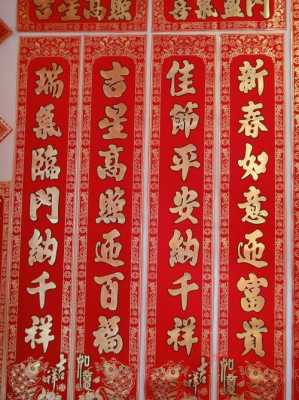 吉星高照
新春如意迎富貴
佳節平安納千祥
吉星高照迎百福
瑞氣臨門納千祥
如意
吉祥
如意
吉祥